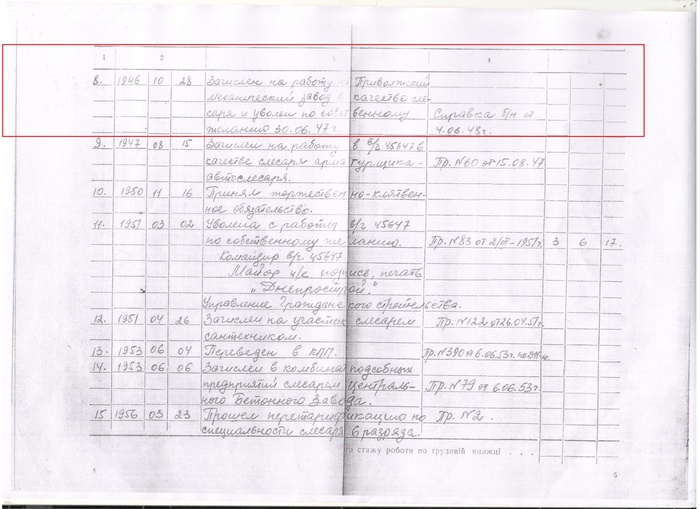 1 2 3 4
8. 1946 10 28 Зачислен на работу на Приволжский
механический завод в качестве сле-
саря и уволен по собственному Справка б/н от
желанию 30.06.47г. 4.06.48г.
9. 1947 08 15 Зачислен на работу в в/ч 45647 в
качестве слесаря арматурщика - Пр. №60 от 15.08.47
автослесаря.
10. 1950 11 16 Принял торжественно-клятвен-
ное обязательство.
11. 1951 03 02 Уволен с работы в/ч 45647
по собственному желанию. Пр. №83 от 2/III-1951г. 3 6 17.
Командир в/ч 45647
Майор п/п подпись, печать
"Днепрострой."
Управление Гражданского строительства.
12. 1951 04 26 Зачислен на участок слесарем Пр. №122 от 26.04.51г.
сантехником.
13. 1953 06 04 Переведен в КПП. Пр. №390 от 6.06.53г.
14. 1953 06 06 Зачислен в комбинат подсобных
предприятий слесарем Централь- Пр. №79 от 6.06.53г.
ного Бетонного Завода.
15 1956 03 23 Прошел перетарификацию по Пр. №2.
специальности слесаря 6 разряда.
го стажу роботи по трудовій книжці . . .
4 5